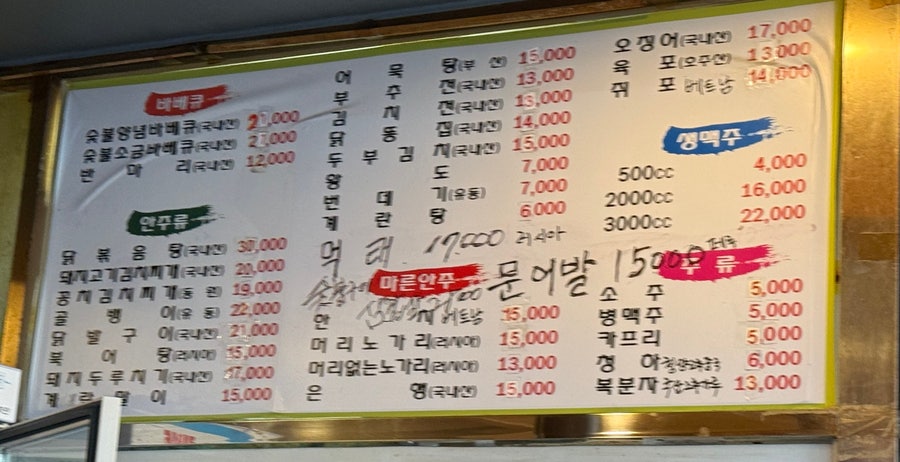 바베큐
숯불양념바베큐(국내산) 2,000
숯불소금바베큐(국내산) 2,000
반 마 리(국내산) 12,000
안주류
닭 볶 음 탕(국내산) 30,000
돼지고기김치찌개(국내산) 20,000
꽁치김치찌개(동 원) 19,000
골 뱅 이(유 동) 22,000
닭 발 구 이(국내산) 21,000
북 어 탕(러시아) 15,000
돼지두루치기(국내산) 17,000
계 란 말 이 15,000
어 묵 탕(부 산) 15,000
부 추 전(국내산) 13,000
김 치 전(국내산) 13,000
닭 똥 집(국내산) 14,000
두 부 김 치(국내산) 15,000
황 도 7,000
번 데 기(유동) 7,000
계 란 탕 6,000
먹 태 17.000 러시아
마른안주
문어발 15000
베트남 15,000
머리노가리(러시아) 15,000
머리없는노가리(러시아) 13,000
은 행(국내산) 15,000
오 징 어(국내산) 17,000
육 포(호주산) 13000
쥐 포 베트남 14,000
생맥주
500cc 4,000
2000cc 16,000
3000cc 22,000
주 류
소 주 5,000
병맥주 5,000
카프리 5,000
청 하 6,000
복분자 13,000